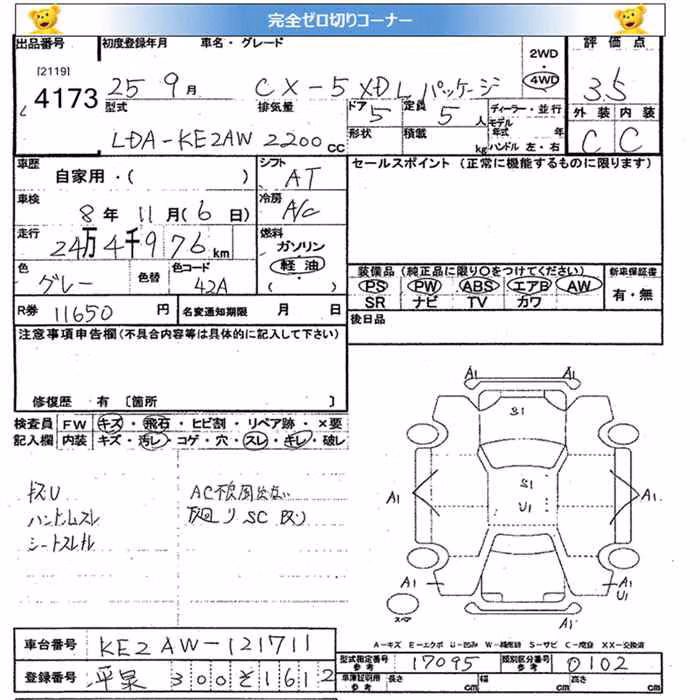 完全ゼロ切りコーナー
出品番号 初度登録年月 車名・グレード 2WD・4WD 評価点
[2119] 4173
25年 9月 CX-5 XDLパッケージ 3.5
型式 排気量 ドア 5 定員 5人 ディーラー・並行 外装 内装
LDA-KE2AW 2200cc 形状 積載 kg モデル年式 年 C C
ハンドル 左・右
車歴 自家用・( ) シフト AT セールスポイント (正常に機能するものに限ります)
車検 8年 11月(6日) 冷房 A/C
走行 24万4千976km 燃料 ガソリン 軽油 ( )
色 グレー 色替 色コード 42A 装備品 (純正品に限り○をつけてください) 新車保証書
PS PW ABS エアB AW 有・無
SR ナビ TV カワ
R券 11650円 名変通知期限 月 日 後日品
注意事項申告欄(不具合内容等は具体的に記入して下さい)
修復歴 有 〔箇所 〕
検査員 FW キズ・飛石・ヒビ割・リペア跡・×要
記入欄 内装 キズ・汚レ・コゲ・穴・スレ・キレ・破レ
ハンドルスレ
A1 A1
S1
A1 S1 A1
U1
A1 A1
U1
スペア
車台番号 KE2AW-121711
A-キズ E-エクボ U-凹み W-補修跡 S-サビ C-腐食 XX-交換済
型式指定番号 参考 17095 類別区分番号 参考 0102
登録番号 平泉 300そ1612
車庫証明用 参考 長さ cm 幅 cm 高さ cm